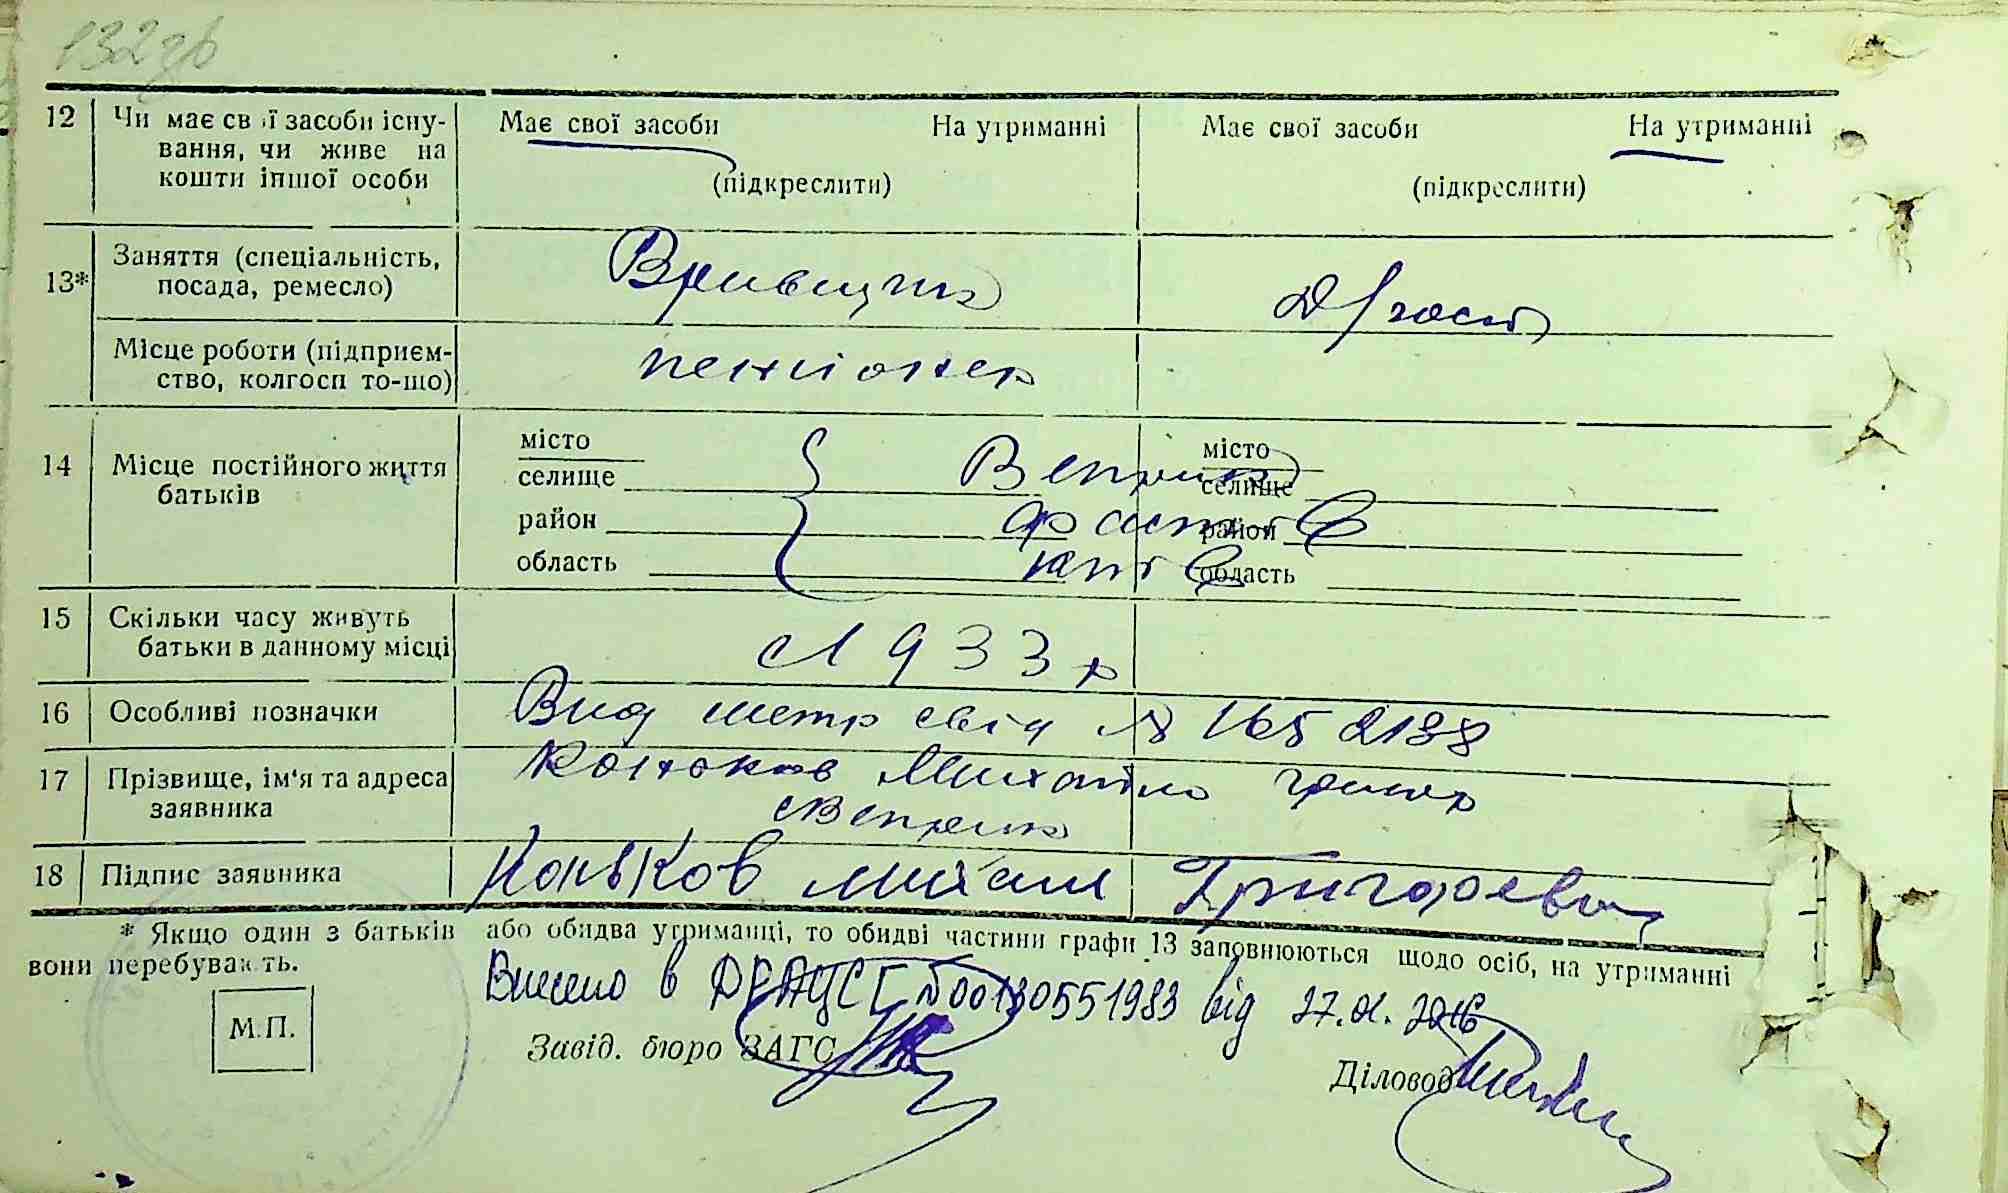 132зв
12 Чи має свої засоби існу-
вання, чи живе на
кошти іншої особи
Має свої засоби На утриманні
(підкреслити)
Має свої засоби На утриманні
(підкреслити)
13* Заняття (спеціальність,
посада, ремесло)
Місце роботи (підприєм-
ство, колгосп то-що)
пенсіонер
14 Місце постійного життя
батьків
місто
селище
район
область
Веприк
місто
селище
район
область
15 Скільки часу живуть
батьки в данному місці
с 1933 р
16 Особливі позначки
Вид метр свід № 165 2138
17 Прізвище, ім'я та адреса
заявника
Коньков Михайло Григор
с Веприк
18 Підпис заявника
Коньков Михаил Григорьевич
* Якщо один з батьків або обидва утриманці, то обидві частини графи 13 заповнюються щодо осіб, на утриманні
вони перебувають.
Внесено в ДРАЦСГ №00130551983 від 27.01.2016
М.П.
Завід. бюро ЗАГС
Діловод